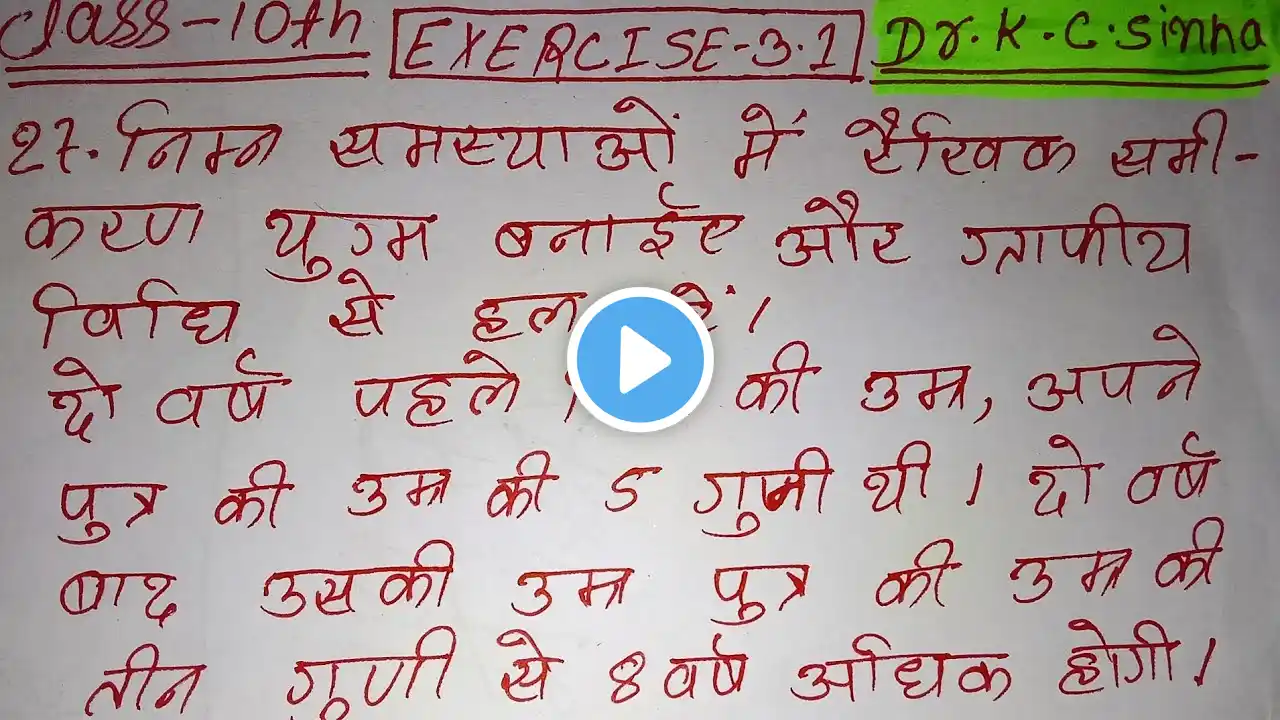 Class-10th EXERCISE-3.1 Dr. K. C. Sinha
27. निम्न समस्याओं में रैखिक समी-
करण युग्म बनाईए और ग्राफीय
विधि से हल
दो वर्ष पहले की उम्र, अपने
पुत्र की उम्र की 5 गुनी थी। दो वर्ष
बाद उसकी उम्र पुत्र की उम्र की
तीन गुणी से 8 वर्ष अधिक होगी।